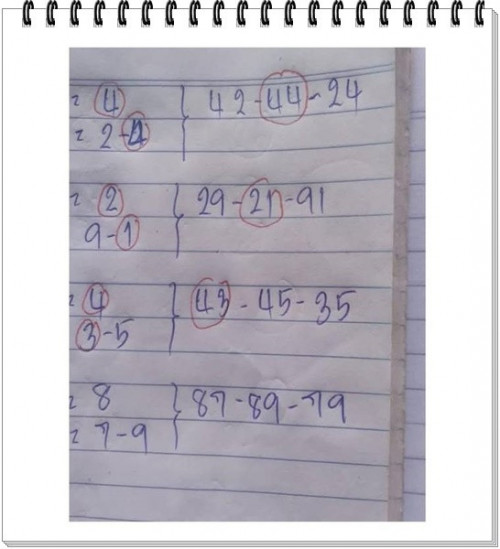 = 4 } 42-44-24
= 2-4
= 2 } 29-21-91
9-1
= 4 } 43-45-35
3-5
= 8 } 87-89-79
= 7-9